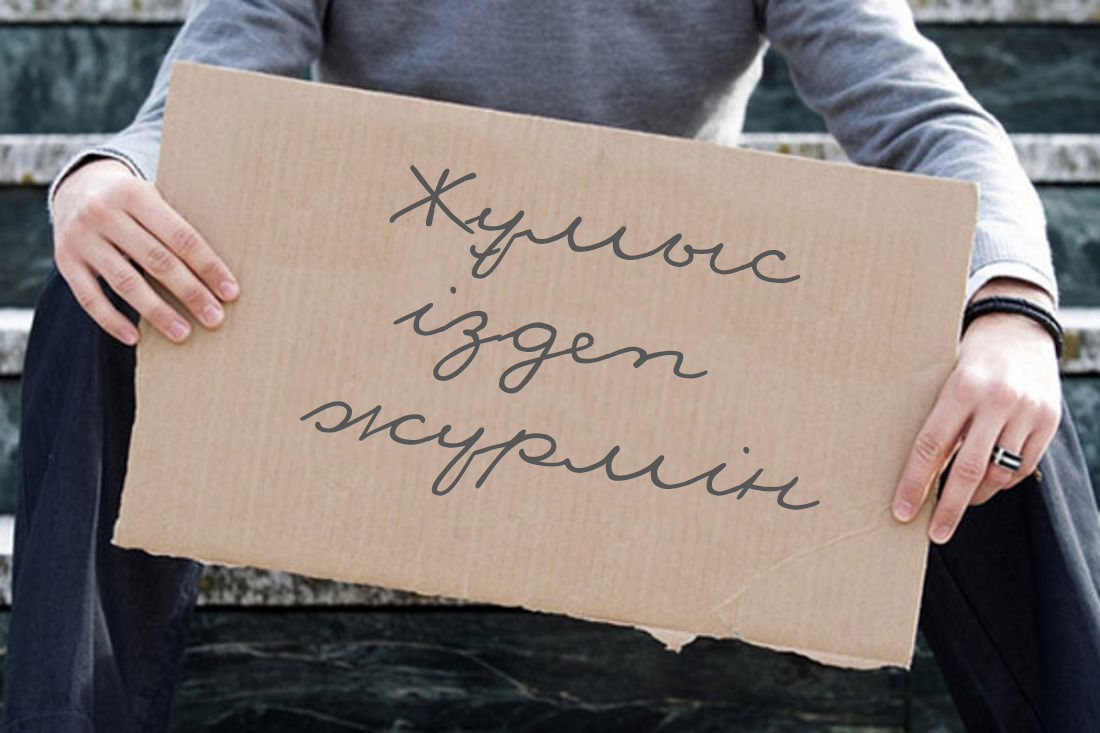 Жұмыс
іздеп
жүрмін